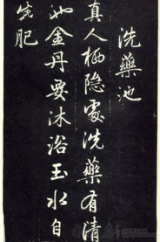 洗藥池
真人栖隱處洗藥有清
池金丹要沐浴玉水自
生肥